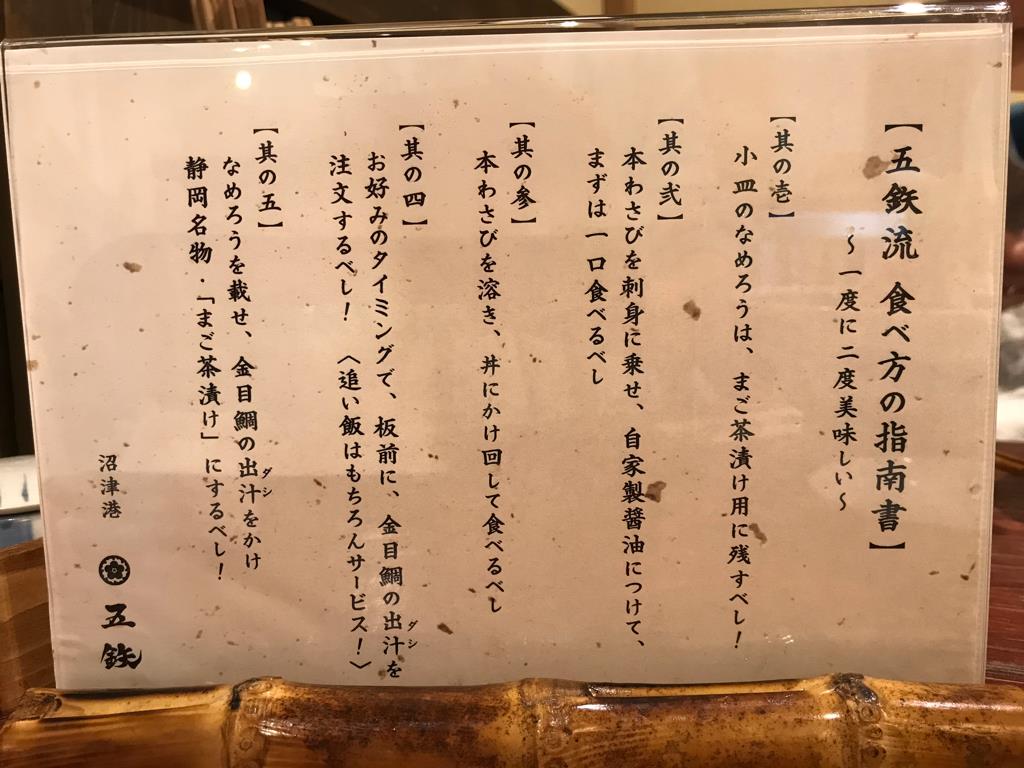 【五鉄流 食べ方の指南書】
〜一度に二度美味しい〜
【其の壱】
小皿のなめろうは、まご茶漬け用に残すべし！
【其の弐】
本わさびを刺身に乗せ、自家製醤油につけて、
まずは一口食べるべし
【其の参】
本わさびを溶き、丼にかけ回して食べるべし
【其の四】
お好みのタイミングで、板前に、金目鯛の出汁を
ダシ
注文するべし！ 〈追い飯はもちろんサービス！〉
【其の五】
なめろうを載せ、金目鯛の出汁をかけ
ダシ
静岡名物・「まご茶漬け」にするべし！
沼津港 五鉄